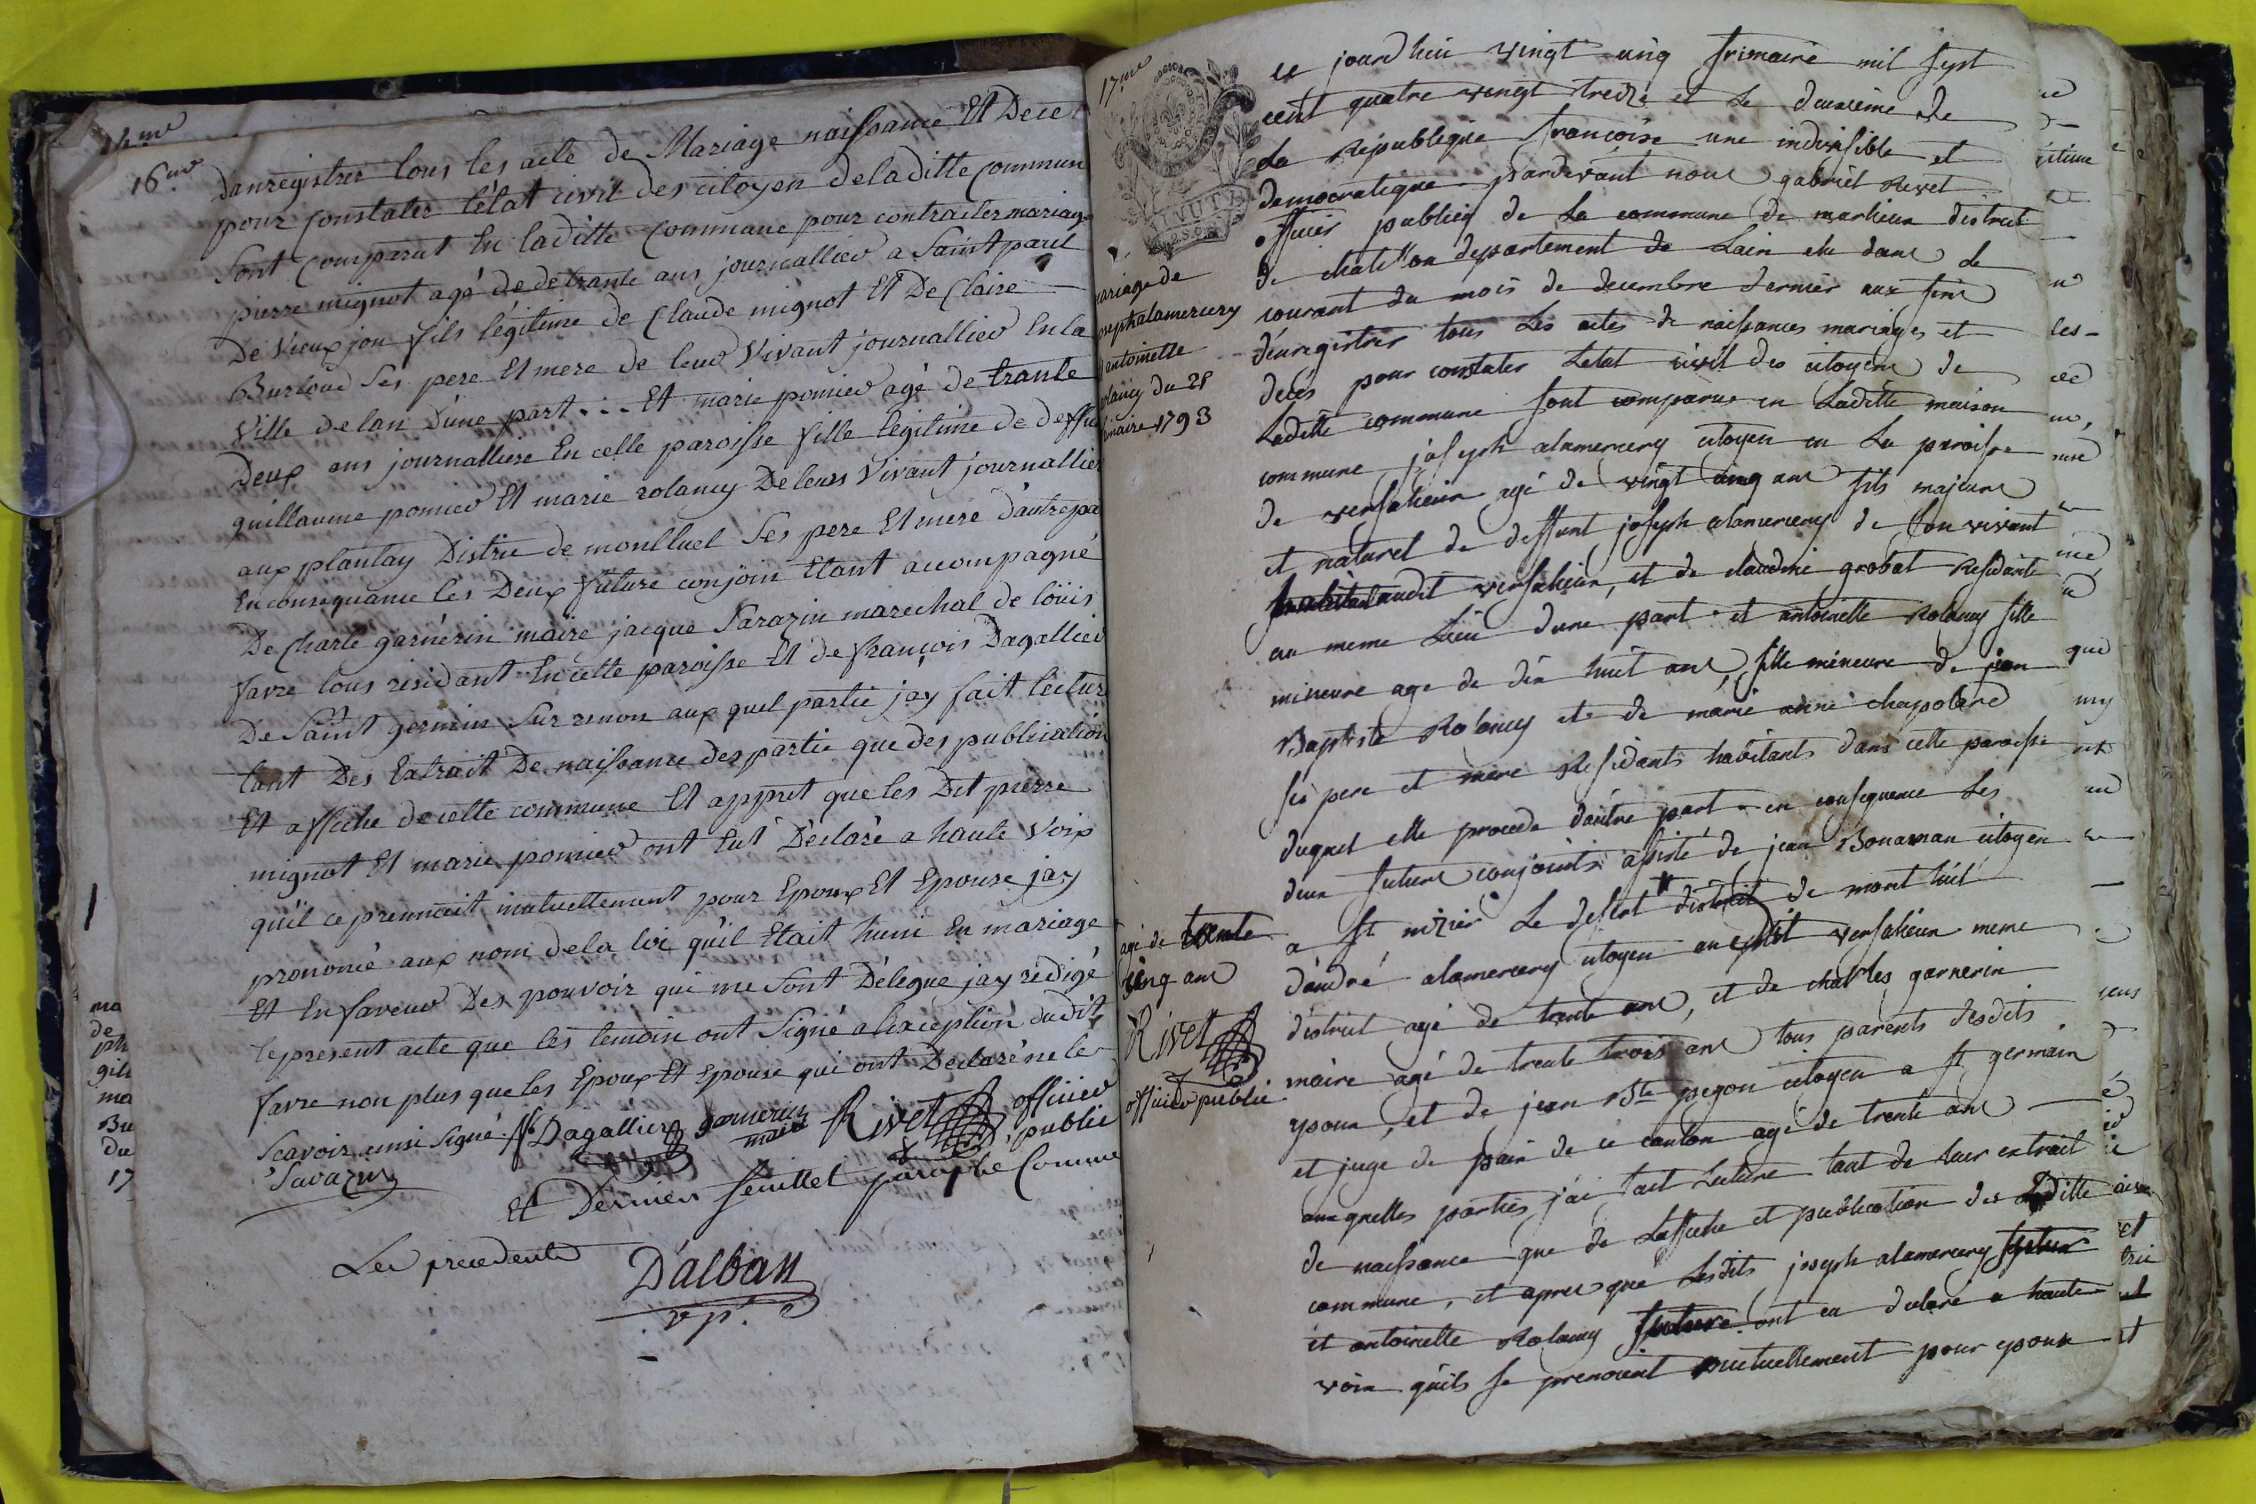 16.me
Danregistrer tous les acte de Mariage naissance Et Decet
pour Constater l'état civil des citoyen deladitte Commun
Sont Comparut En laditte Commune pour contracter mariage
pierre mignot agé de detrante ans journallier a Saint paul
De Vieux jou fils légitime de Claude mignot Et De Claire
ses pere Et mere de leur Vivant journallier En la
Ville delan D'une part ... Et marie ponier agé de trante
Deux ans journalliere En celle paroisse fille legitime de deffun
guillaume ponier Et marie rolancy De leurs Vivant journallier
aux plantay Distric de montluel Ses pere Et mere d'autre pa
En consequance les Deux future conjoin Etant accompagné
De Charle garnérin maire jacque Sarazin marechal de loüis
favre tous residant En cette paroisse Et de françois Dagallier
De Saint germin Sur renon aux quel partie jay fait lectur
tant Des Extrait De naissance des partie que des publication
Et affiche de cette commune Et appret que les Dit pierre
mignot Et marie ponier ont Eut Déclaré a haute Voix
qu'il ce prennoit mutuellement pour Epoux Et Epouse jay
prononcé aux nom dela loi qu'il Etait huni En mariage
Et En faveur Des pouvoir qui me Sont Délegue jay rédigé
le present acte que les temoin ont Signé a lexception dudit
favre non plus que les Epoux Et Epouse qui ont Declaré ne le
Scavoir ainsi Signé f Dagallier garnerin maire Rivet officier public
Sarazin
Et Dernier feuillet paraphe Comme
Les precedents
D'alban
vp.t
17.me
mariage de
joseph alamercery
antoinette
rolancy du 25
frimaire 1793
ce jourd'hui vingt cinq frimaire mil sept
cent quatre vingt treize et le deuxième de
la République françoise une indivisible et
democratique pardevant nous gabriel Rivet
officier publicq de la commune de marlieux district
de chatillon departement de Lain elu dans le
courant du mois de decembre dernier aux fins
d'enregistrer tous Les actes de naissances mariages et
décès pour constater Letat civil des citoyens de
Ledditte commune sont comparus en Laditte maison
commune joseph alamercery citoyen en La paroisse
de versalieux agé de vingt cinq ans fils majeur
et naturel de deffunt joseph alamercery de son vivant
habitant audit versalieux, et de claudine grobat Residante
au meme Lieu d'une part et antoinette Rolancy fille
mineure age de dix huit ans, fille mineure de jean
Baptiste Rolancy et de marie anne chapolard
ses pere et mere Residants habitants dans cette paroisse
duquel elle procede d'autre part en consequence Les
deux futurs conjoints assisté de jean Bonaman citoyen
a St nizier Le desert district de mont luel
d'andré alamercery citoyen au versalieux meme
district agé de trente ans, et de charles garnerin
maire agé de trente trois ans tous parents desdits
epoux, et de jean Bte pegon citoyen a St germain
et juge de paix de ce canton agé de trente ans
auxquelles parties j'ai fait Lecture tant de Leur extrait
de naissance que de Laffiche et publication des Laditte
commune, et apres que Lesdits joseph alamercery futur
et antoinette Rolancy future ont eu declaré a haute
voix qu'ils se prenoient mutuellement pour epoux
agé de trente
cinq ans
Rivet
officier public